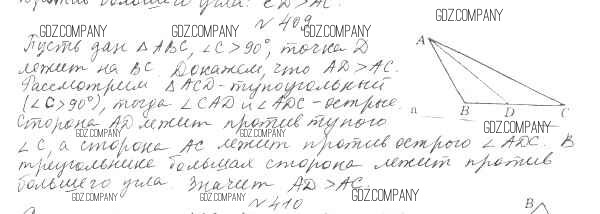 против большего угла: CD > AC.
GDZ.COMPANY
№ 409
GDZ.COMPANY GDZ.COMPANY GDZ.COMPANY
Пусть дан ΔABC, ∠C > 90°, точка D
лежит на BC. Докажем, что AD > AC.
Рассмотрим ΔACD - тупоугольный
(∠C > 90°), тогда ∠CAD и ∠ADC - острые.
Сторона AD лежит против тупого
GDZ.COMPANY GDZ.COMPANY GDZ.COMPANY
∠C, а сторона AC лежит против острого ∠ADC. В
треугольнике большая сторона лежит против
большего угла. Значит AD > AC.
GDZ.COMPANY GDZ.COMPANY GDZ.COMPANY
№ 410
A
B D C
B